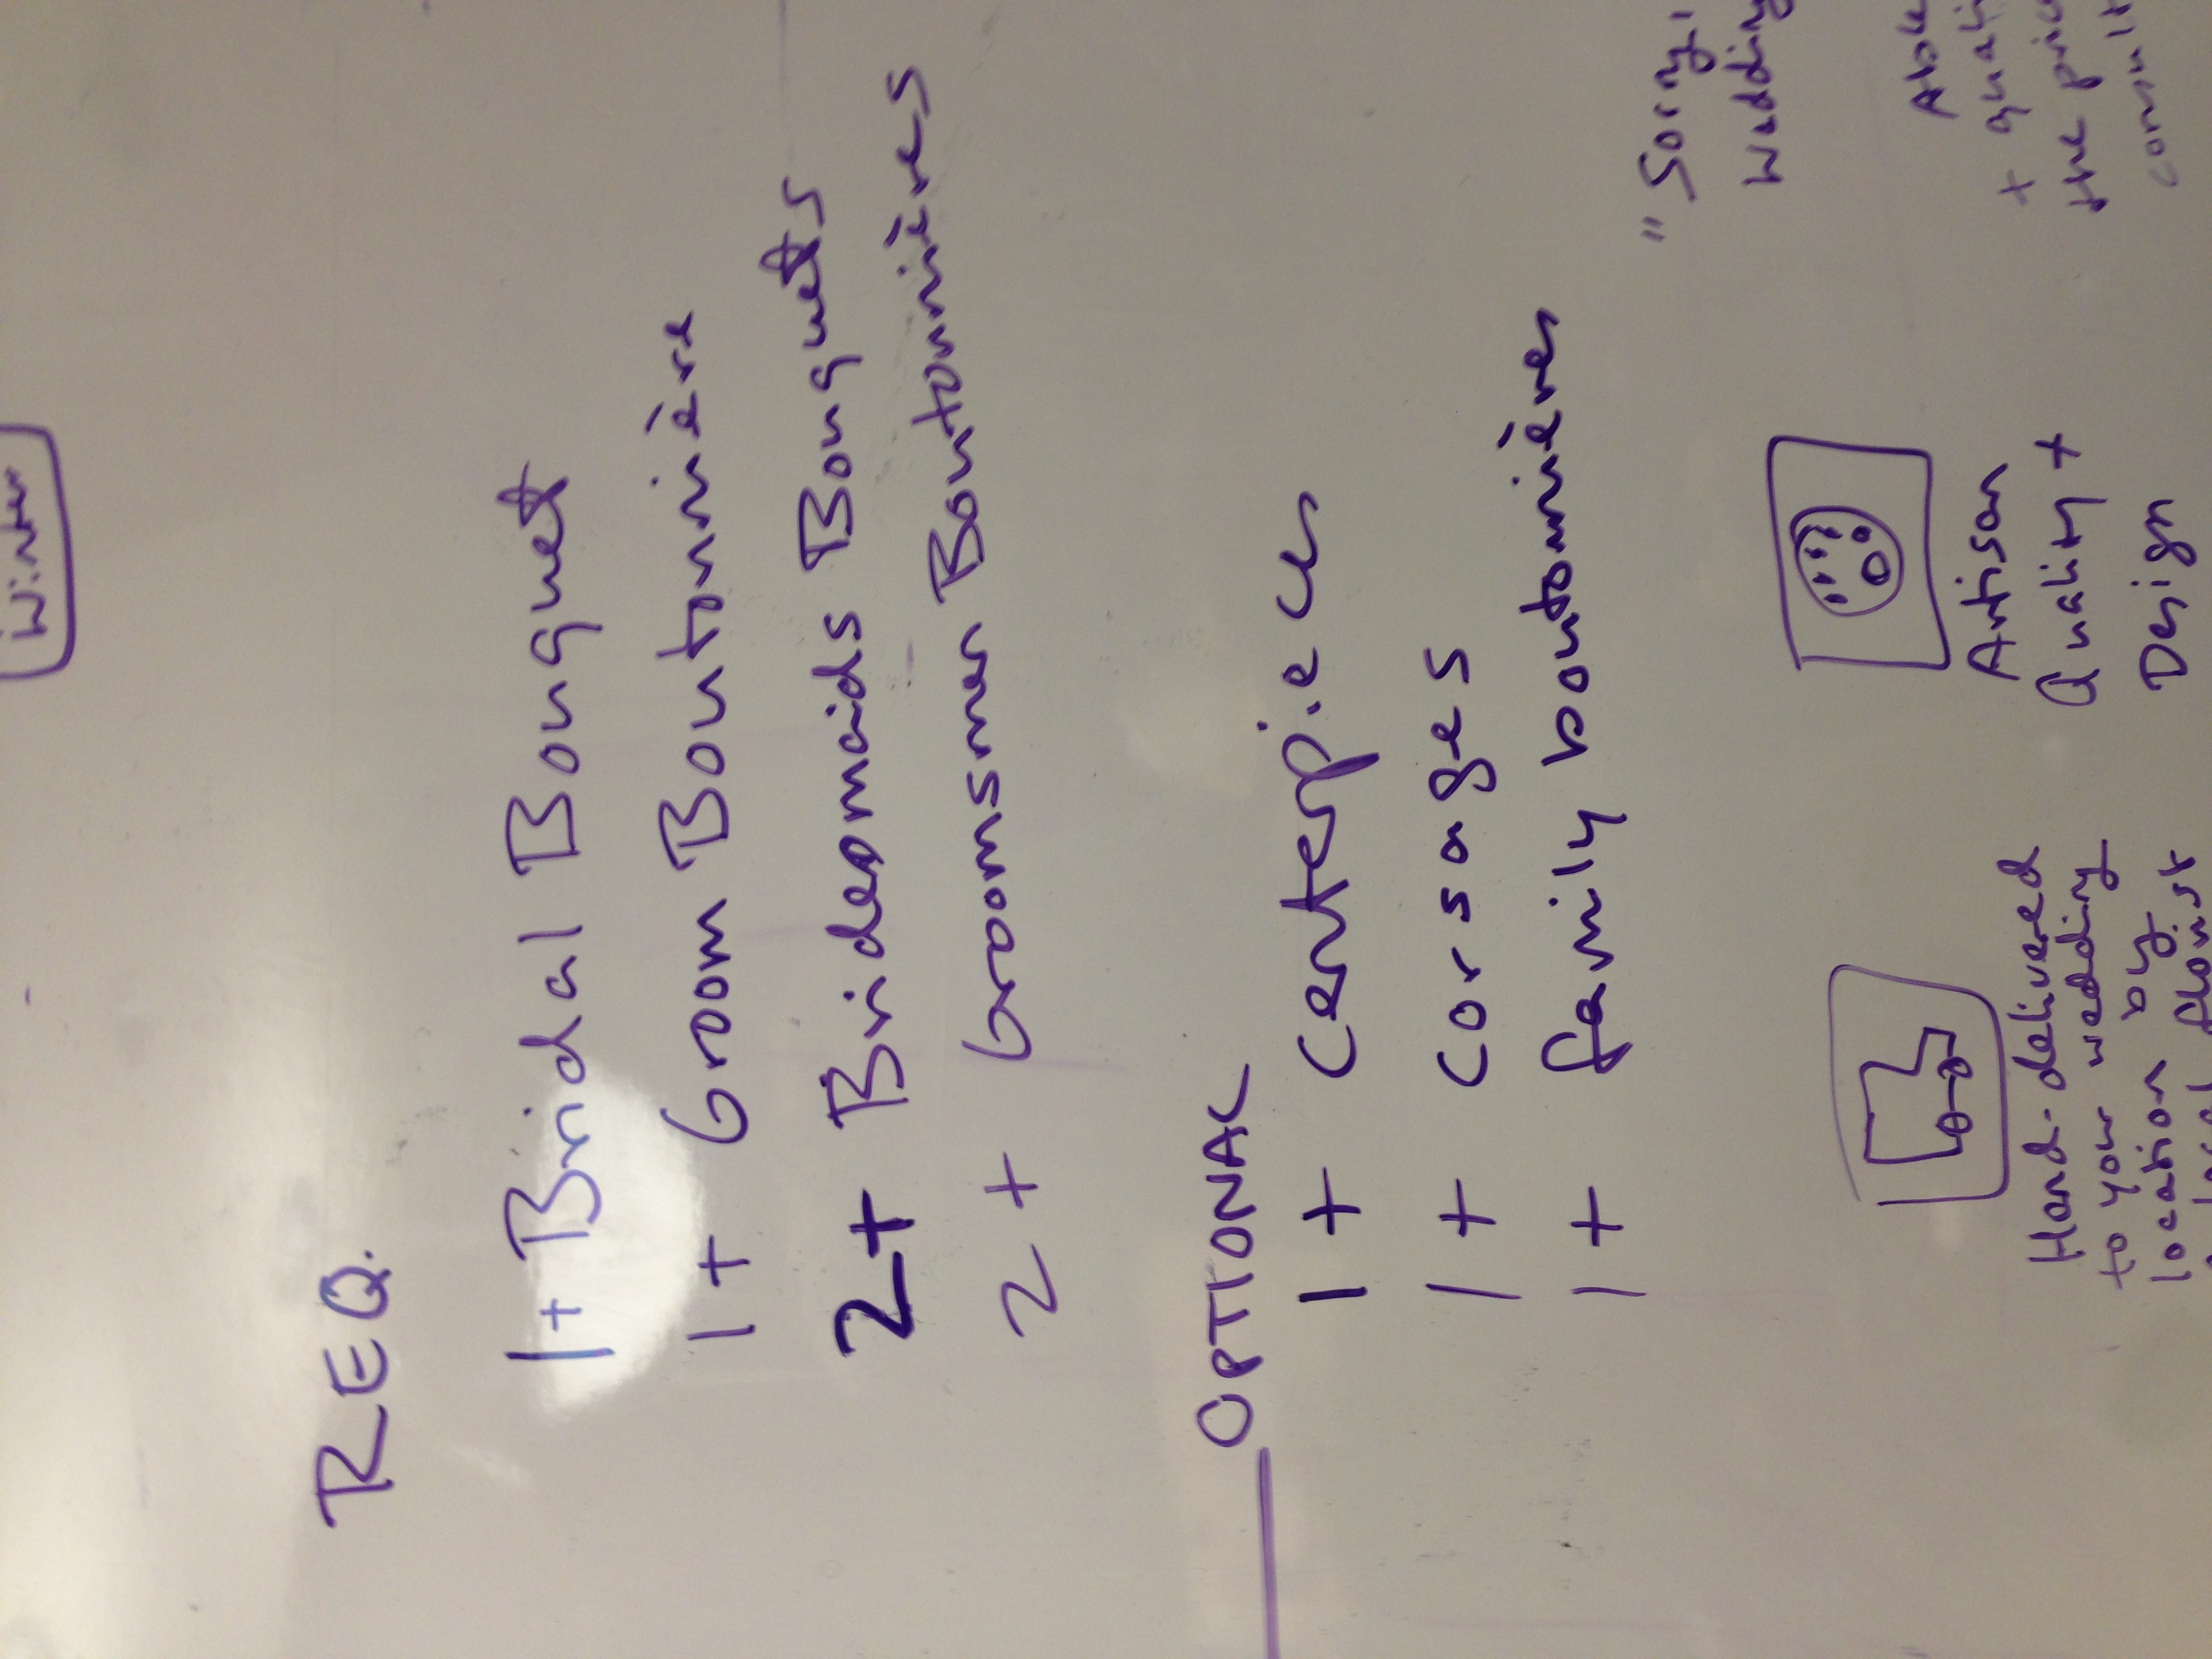 Winter
REQ.
1+ Bridal Bouquet
1+ Groom Boutonnière
2+ Bridesmaids Bouquets
2+ Groomsmen Boutonnières
OPTIONAL
1+ Centerpieces
1+ corsages
1+ family boutonnières
"Sorry,
Wedding
Hand-delivered
to your wedding
location by
local florist
Artisan
Quality +
Design
+ quali
the pric